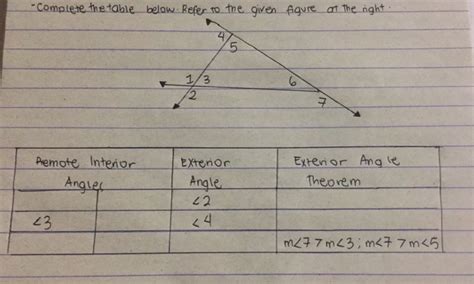 -Complete the table below. Refer to the given figure at the right.
4
5
1 3
6
2
7
Remote Interior Angles | Exterior Angle | Exterior Angle Theorem
<2
<3 | <4
m<7 > m<3 ; m<7 > m<5